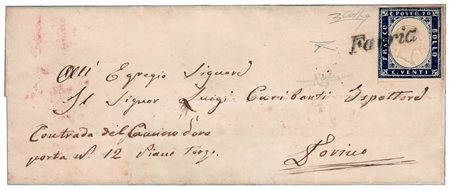 Fabria
C. POSTE 20
FRANCO
BOLLO
C. VENTI
All' Egregio Signore
Il Signor Luigi Caribanti Ispettore
Contrada del Cannon d'oro
porta N. 12 Piano Terzo
Torino